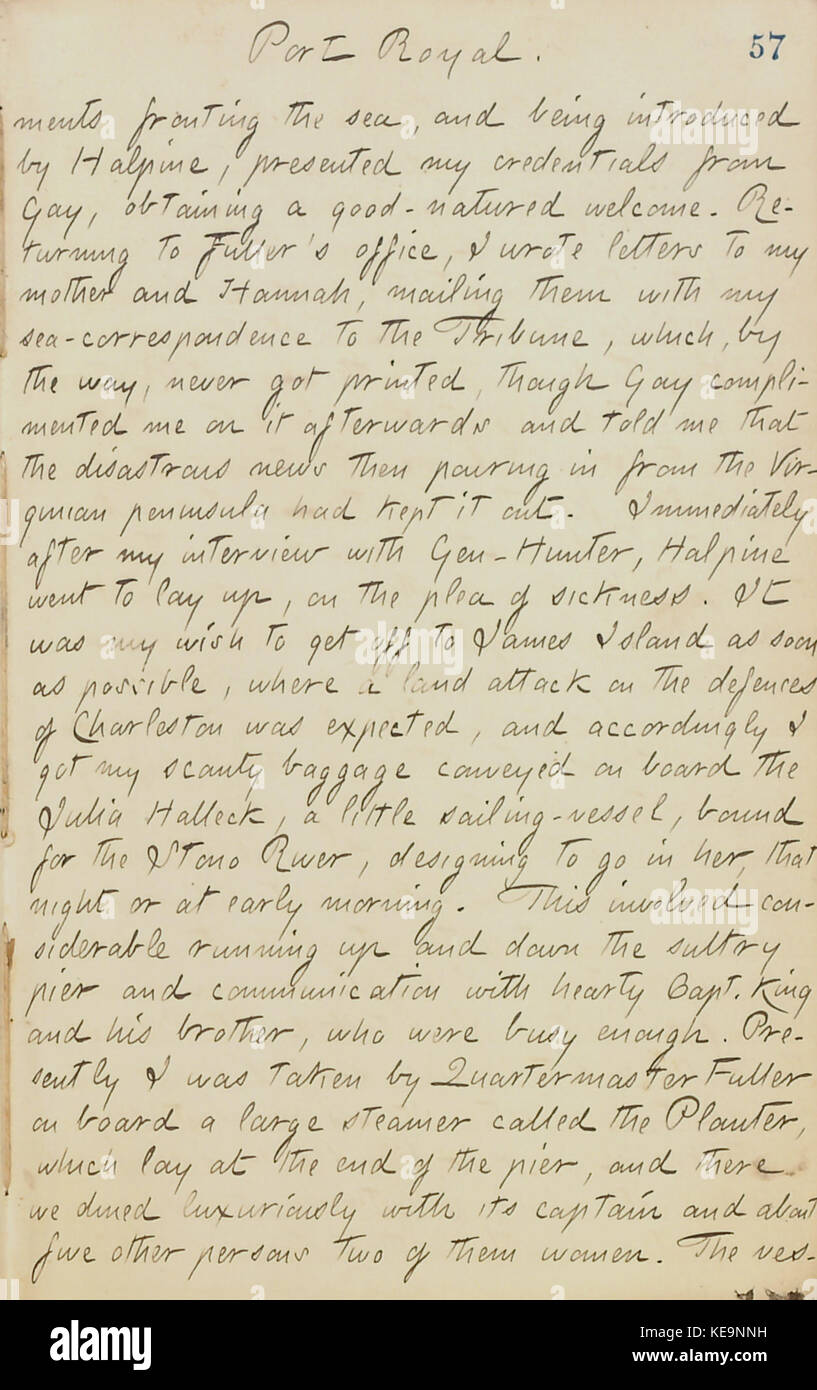 Port Royal. 57
ments fronting the sea, and being introduced
by Halpine, presented my credentials from
Gay, obtaining a good-natured welcome. Re-
turning to Fuller's office, I wrote letters to my
mother and Hannah, mailing them with my
sea-correspondence to the Tribune, which, by
the way, never got printed, though Gay compli-
mented me on it afterwards and told me that
the disastrous news then pouring in from the Vir-
ginian peninsula had kept it out. Immediately
after my interview with Gen-Hunter, Halpine
went to lay up, on the plea of sickness. It
was my wish to get off to James Island as soon
as possible, where a land attack on the defences
of Charleston was expected, and accordingly I
got my scanty baggage conveyed on board the
Julia Halleck, a little sailing-vessel, bound
for the Stono River, designing to go in her, that
night or at early morning. This involved con-
siderable running up and down the sultry
pier and communication with hearty Capt. King
and his brother, who were busy enough. Pre-
sently I was taken by Quartermaster Fuller
on board a large steamer called the Planter,
which lay at the end of the pier, and there
we dined luxuriously with its captain and about
five other persons two of them women. The ves-
alamy
alamy
alamy
a
a
alamy
Image ID: KE9NNH
www.alamy.com